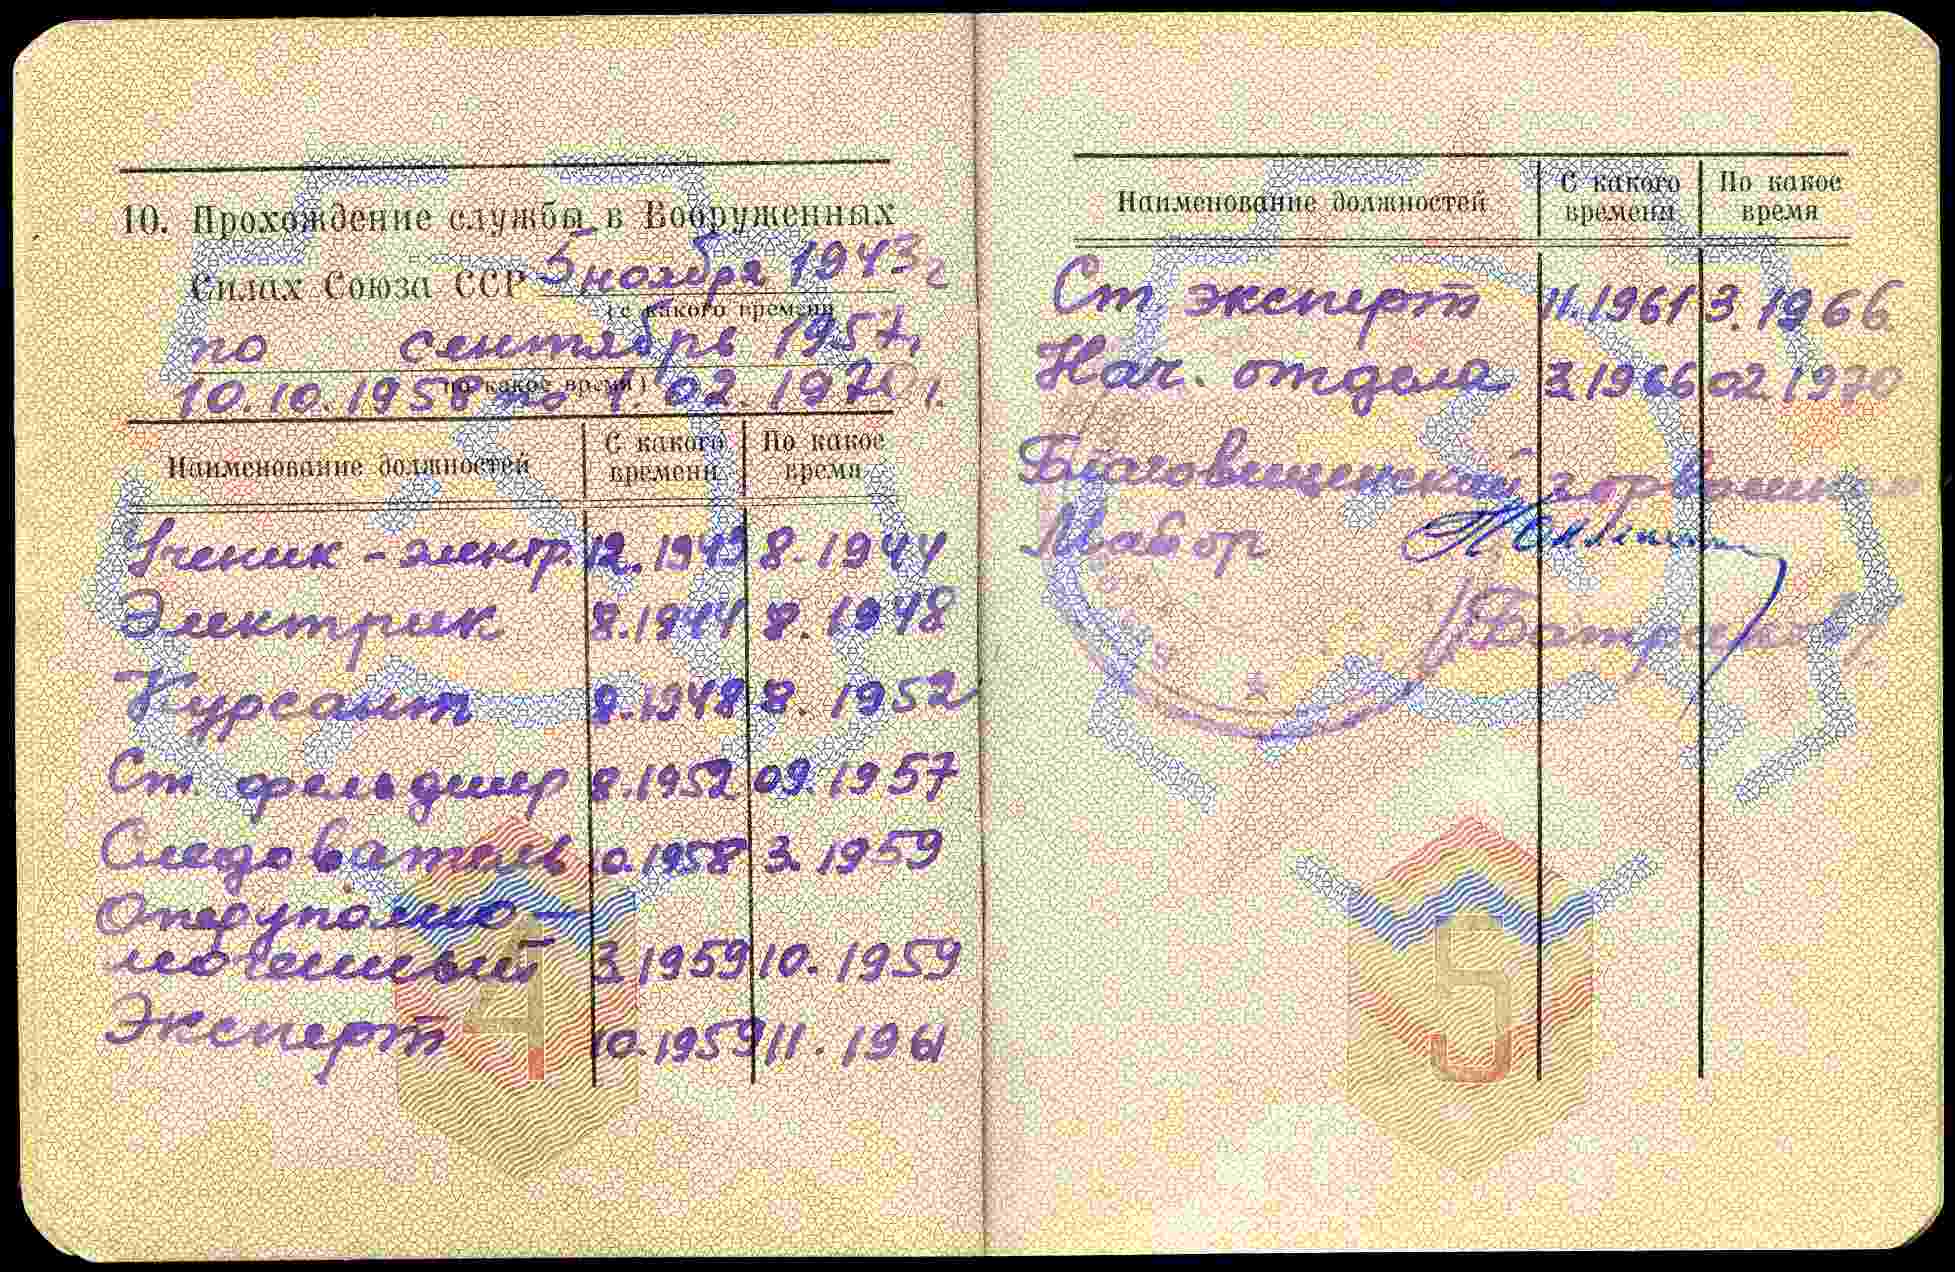 10. Прохождение службы в Вооруженных
Силах Союза ССР 5 ноября 1943 г
(с какого времени
по сентябрь 1957г.
по какое время)
10.10.1958 по 1. 02. 1970 г.
Наименование должностей
С какого времени
По какое время
Ученик - электр. 12. 1943 8. 1944
Электрик 8. 1944 8. 1948
Курсант 8. 1948 8. 1952
Ст. фельдшер 8. 1952 09. 1957
Следователь 10. 1958 3. 1959
Оперуполно-
моченный 3. 1959 10. 1959
Эксперт 10. 1959 11. 1961
4
Наименование должностей
С какого времени
По какое время
Ст эксперт 11. 1961 3. 1966
Нач. отдела 3. 1966 02 1970
Благовещенский горвоенком
Майор
/Батраков/
5